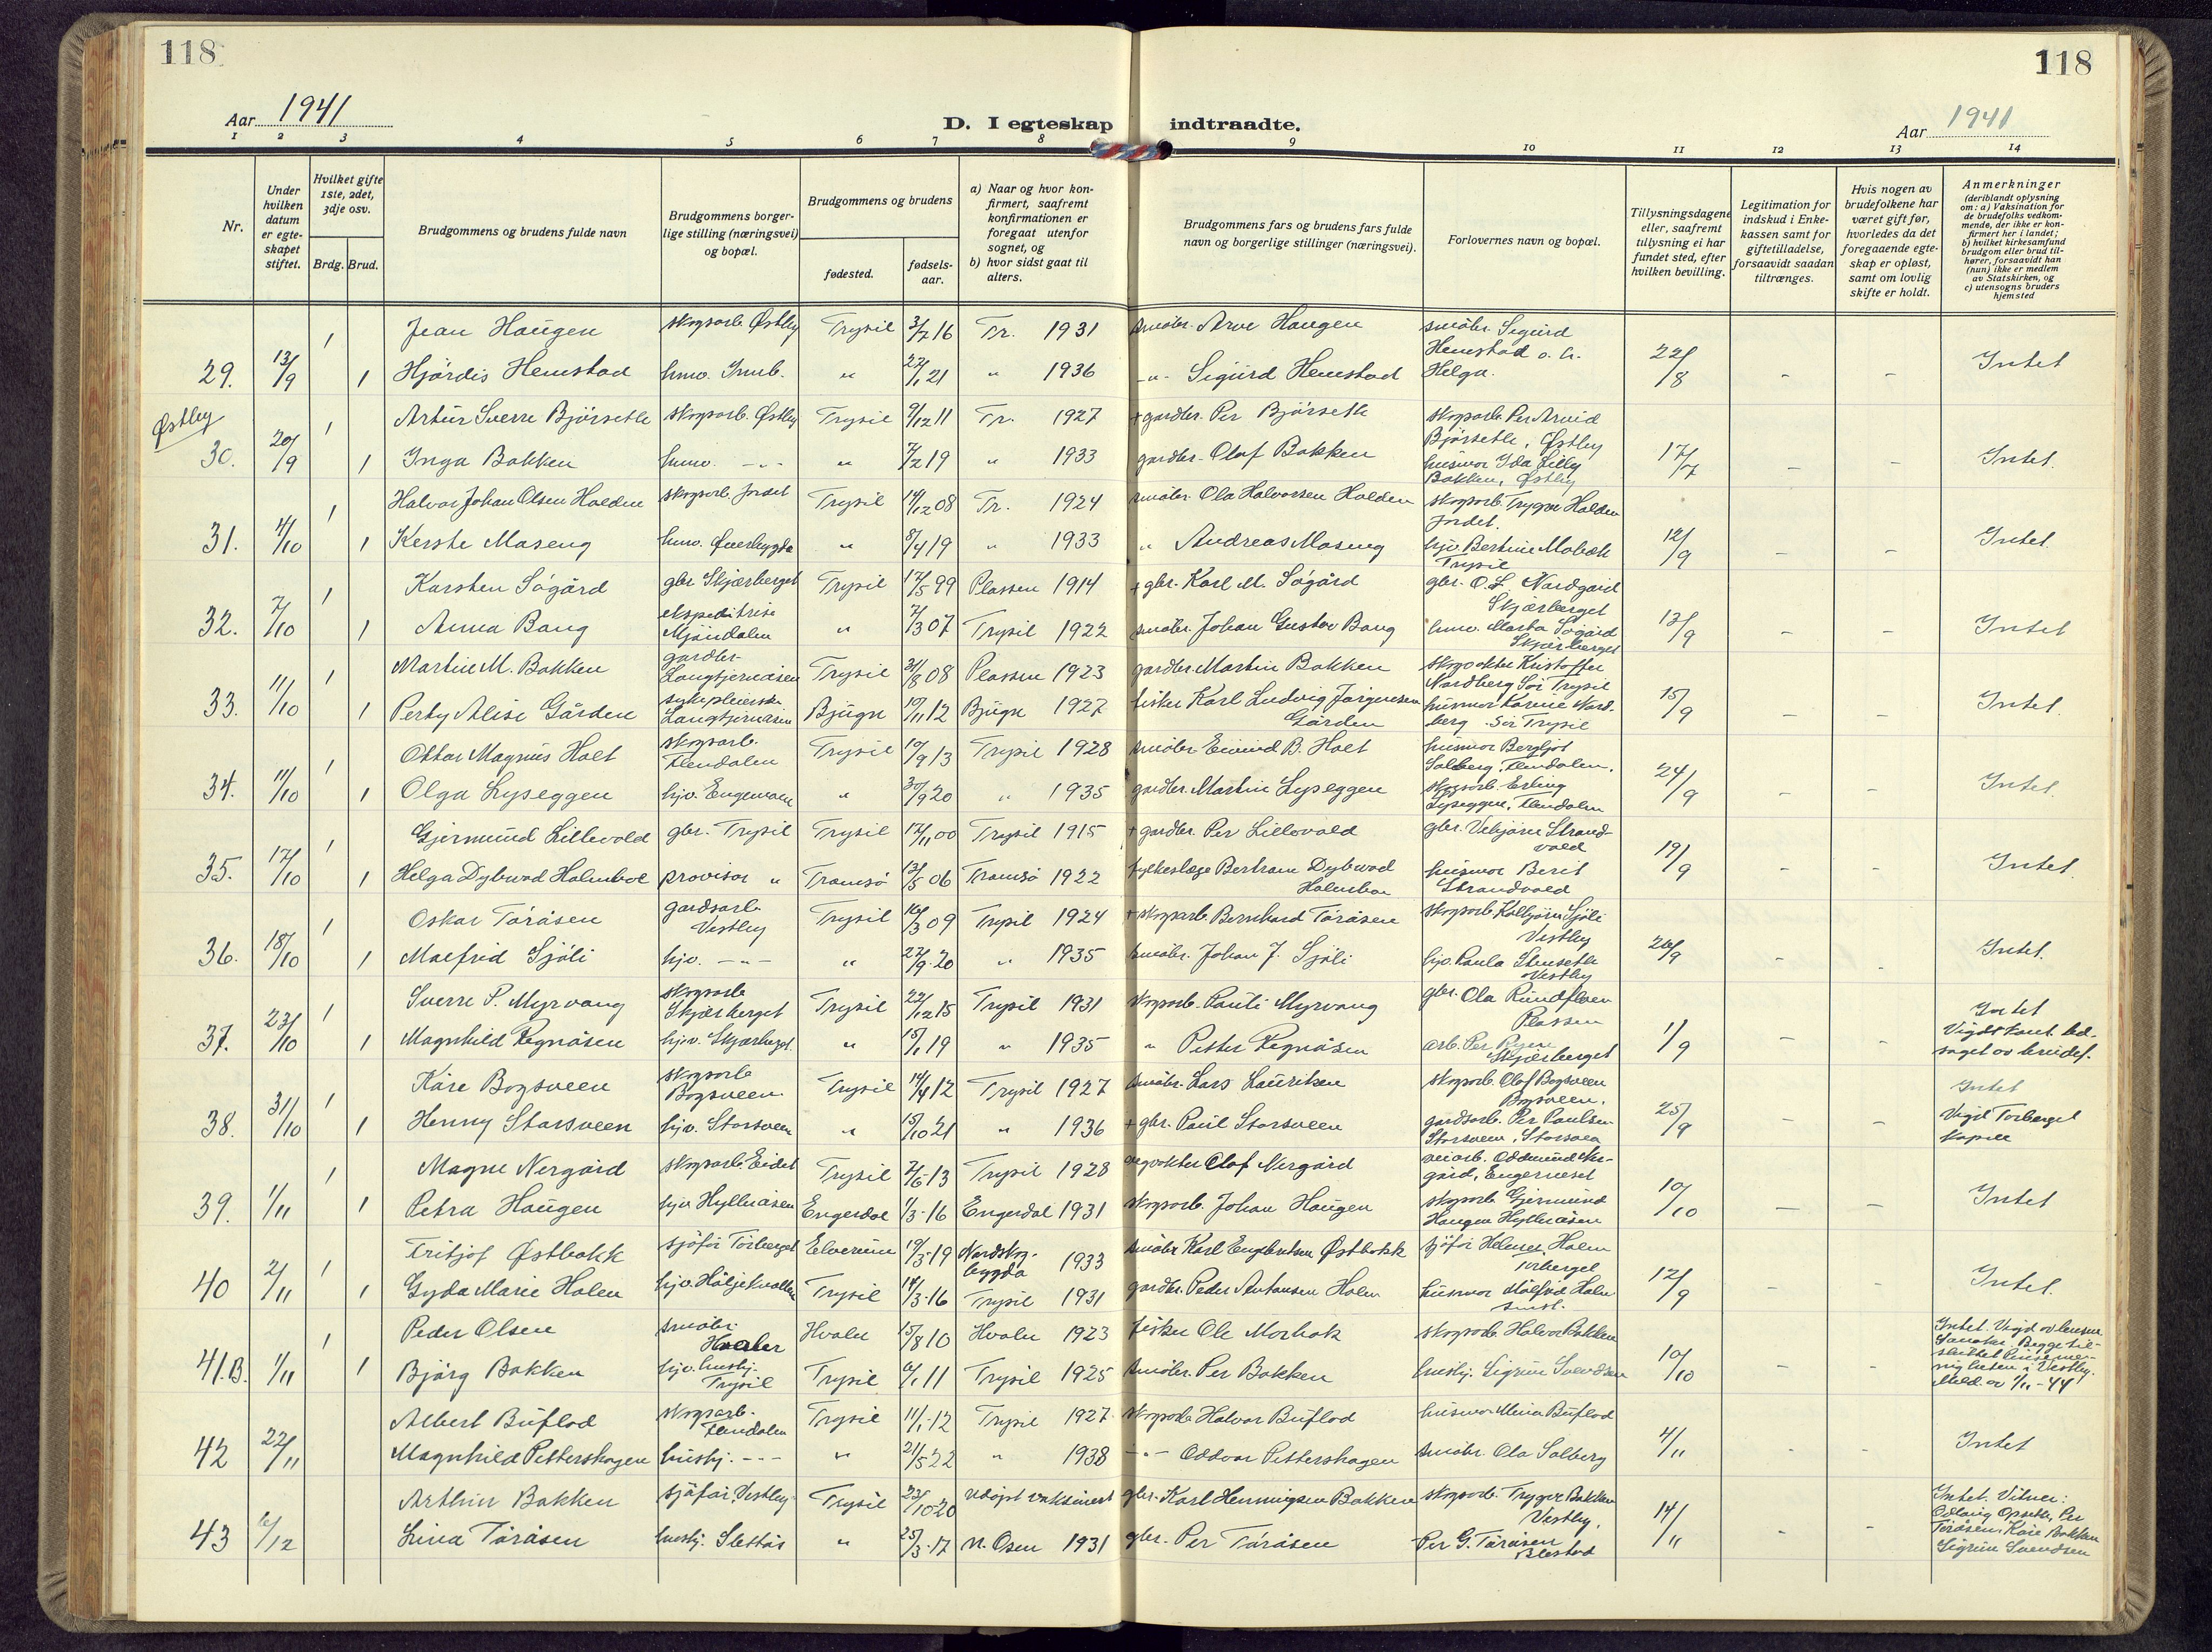 118
118
Aar 1941
D. I egteskap indtraadte.
Aar 1941
1 2 3 4 5 6 7 8 9 10 11 12 13 14
Nr.
Under hvilken datum er egteskapet stiftet.
Hvilket gifte 1ste, 2det, 3dje osv.
Brdg. Brud.
Brudgommens og brudens fulde navn
Brudgommens borgerlige stilling (næringsvei) og bopæl.
Brudgommens og brudens
fødested.
fødselsaar.
a) Naar og hvor konfirmert, saafremt konfirmationen er foregaat utenfor sognet, og
b) hvor sidst gaat til alters.
Brudgommens fars og brudens fars fulde navn og borgerlige stillinger (næringsvei).
Forlovernes navn og bopæl.
Tillysningsdagene eller, saafremt tillysning ei har fundet sted, efter hvilken bevilling.
Legitimation for indskud i Enkekassen samt for giftetilladelse, forsaavidt saadan tiltrænges.
Hvis nogen av brudefolkene har været gift før, hvorledes da det foregaaende egteskap er opløst, samt om lovlig skifte er holdt.
Anmerkninger (deriblandt oplysning om: a) Vaksination for de brudefolks vedkommende, der ikke er konfirmert her i landet; b) hvilket kirkesamfund brudgom eller brud tilhører, forsaavidt han (hun) ikke er medlem av Statskirken, og c) utensogns bruders hjemsted
1 Jean Haugen skogsarb. Østby Trysil 3/7 16 Tr. 1931 småbr. Arve Haugen småbr. Sigurd
Hemstad o. h.
29. 13/9 1 Hjördis Hemstad hmv. Innb. " 27/1 21 " 1936 -"- Sigurd Hemstad Helga. 22/8 - - Intet
Østby
1 Artur Sverre Björseth skogsarb. Østby Trysil 9/12 11 Tr. 1927 + gardbr. Per Björseth skogsarb. Per Arvid
Björseth, Østby
30. 20/9 1 Inga Bakken hmv. -"- " 7/2 19 " 1933 gardbr. Olaf Bakken husmor Ida Lilly
Bakken, Østby 17/7 - - Intet.
1 Halvor Johan Olsen Halden skogsarb. Jordet Trysil 14/12 08 Tr. 1924 småbr. Ola Halvorsen Halden skogsarb. Trygve Halden
Jordet.
31. 4/10 1 Kerste Maseng hmv. Øverbygda " 8/4 19 " 1933 " Andreas Maseng hjv. Bertine Moback
Trysil 12/9 - - Intet.
1 Karsten Sögård gbr. Skjærberget Trysil 17/5 99 Plassen 1914 + gbr. Karl M. Sögård gbr. O. L. Nordgård
Skjærberget
32. 7/10 1 Anna Bang ekspeditrise
Mjöndalen " 7/3 07 Trysil 1922 småbr. Johan Gustav Bang hmv. Marta Sögård
Skjærberget 13/9 - - Intet
1 Martin M. Bakken gardbr.
Langtjernåsen Trysil 24/8 08 Plassen 1923 gardbr. Martin Bakken skogvokter Kristoffer
Nordberg Sör Trysil
33. 11/10 1 Perly Alise Gården sykepleierske
Langtjernåsen Bjugn 10/11 12 Bjugn 1927 fisker Karl Ludvig Jörgensen
Gården husmor Karine Nordberg Sör Trysil 15/9 Intet.
1 Ottar Magnus Holt skogsarb.
Flendalen Trysil 10/9 13 Trysil 1928 småbr. Eivind B. Holt husmor Bergljot
Solberg, Flendalen.
34. 11/10 1 Olga Lyseggen hjv. Engemoen " 30/9 20 " 1935 gardbr. Martin Lyseggen skogsarb. Erling
Lyseggen, Flendalen 24/9 - - Intet.
1 Gjermund Lillevold gbr. Trysil Trysil 17/11 00 Trysil 1915 + gardbr. Per Lillevold gbr. Vebjörn Strandvold
35. 17/10 1 Helga Dybwad Holmboe provisor " Tromsö 13/5 06 Tromsö 1922 fylkeslæge Bertram Dybwad
Holmboe husmor Berit
Strandvold 19/9 - - Intet.
1 Oskar Töråsen gardsarb.
Vestby Trysil 16/3 09 Trysil 1924 + skogsarb. Bernhard Töråsen skogsarb. Kolbjörn Sjöli
Vestby
36. 18/10 1 Malfrid Sjöli hjv. -"- " 27/9 20 " 1935 småbr. Johan J. Sjöli hjv. Paula Stenseth
Vestby 26/9 - - Intet.
1 Sverre P. Myrvang skogsarb.
Skjærberget Trysil 22/12 15 Trysil 1931 skogsarb. Pauli Myrvang gbr. Ola Rundfloen
Plassen
37. 23/10 1 Magnhild Regnåsen hjv. Skjærberget " 15/1 19 " 1935 " Petter Regnåsen arb. Per Ryen
Skjærberget 1/9 - - Intet
1 Kåre Bogsveen skogsarb.
Bogsveen Trysil 14/4 12 Trysil 1927 småbr. Lars Lauritsen skogsarb. Olaf Bogsveen
Bogsveen.
38. 31/10 1 Henny Storsveen hjv. Storsveen " 15/10 21 " 1936 + gbr. Paul Storsveen gardsarb. Per Paulsen
Storsveen, Storsveen 25/9 - - Intet
Vigd Torberget
kapell
1 Magne Nergård skogsarb. Eidet Trysil 2/6-13 Trysil 1928 Olaf Nergård veiarb. Oddmund Nergård, Engerneset
39. 1/11 1 Petra Haugen hjv. Hyllåsen Engerdal 1/3-16 Engerdal 1931 skogsarb. Johan Haugen skogsarb. Gjermund
Haugen Hyllåsen 10/10 - - Intet
1 Fritjof Østbakk sjåför Torberget Elverum 19/3-19 Nordskogbygda 1933 småbr. Karl Engebretsen Østbakk sjåför Helmer Holen
Torberget
40 2/11 1 Gyda Marie Holen hjv. Höljekvollen Trysil 14/3-16 Trysil 1931 gardbr. Peder Antonsen Holen husmor Målfrid Holen 12/9 - - Intet.
1 Peder Olsen småbr.
Hvaler Hvaler 15/8 10 Hvaler 1923 fisker Ole skogsarb. Halvor Bakken
41.B. 1/11 1 Bjärg Bakken hjv. hushj.
Trysil Trysil 6/1 11 Trysil 1925 småbr. Per Bakken hushj. Sigrun Svendsen 10/10 - - Intet. Vigd av lensm.
Begge tilsluttet Pinsemenigheten i Vestby.
Meld. av 1/11-44
Albert Buflod skogsarb.
Flendalen Trysil 11/1-12 Trysil 1927 skogsarb. Halvor Buflod husmor Mina Buflod
42 22/11 Magnhild Pettershagen hushj. -"- " 21/5 22 " 1938 -"- Oddvar Pettershagen småbr. Ola Solberg 4/11 - - Intet
Arthur Bakken sjåför, Vestby Trysil 23/10-20 udöpt vaksinert gbr. Karl Henningsen Bakken skogsarb. Trygve Bakken
Vestby.
43 6/12 Lina Töråsen hushj. Slettås " 25/3-17 N. Osen 1931 gbr. Per Töråsen Per G. Töråsen 14/11 - - Intet. Vitner:
Odlaug Opseth, Per
Töråsen, Kåre Bakken
Sigrun Svendsen